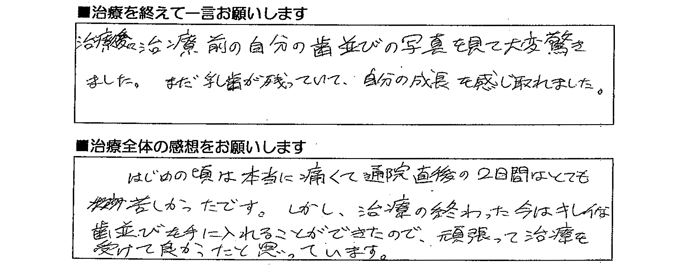 ■治療を終えて一言お願いします
治療後に治療前の自分の歯並びの写真を見て大変驚き
ました。まだ乳歯が残っていて、自分の成長を感じ取れました。
■治療全体の感想をお願いします
はじめの頃は本当に痛くて通院直後の2日間はとても
苦しかったです。しかし、治療の終わった今はキレイな
歯並びを手に入れることができたので、頑張って治療を
受けて良かったと思っています。